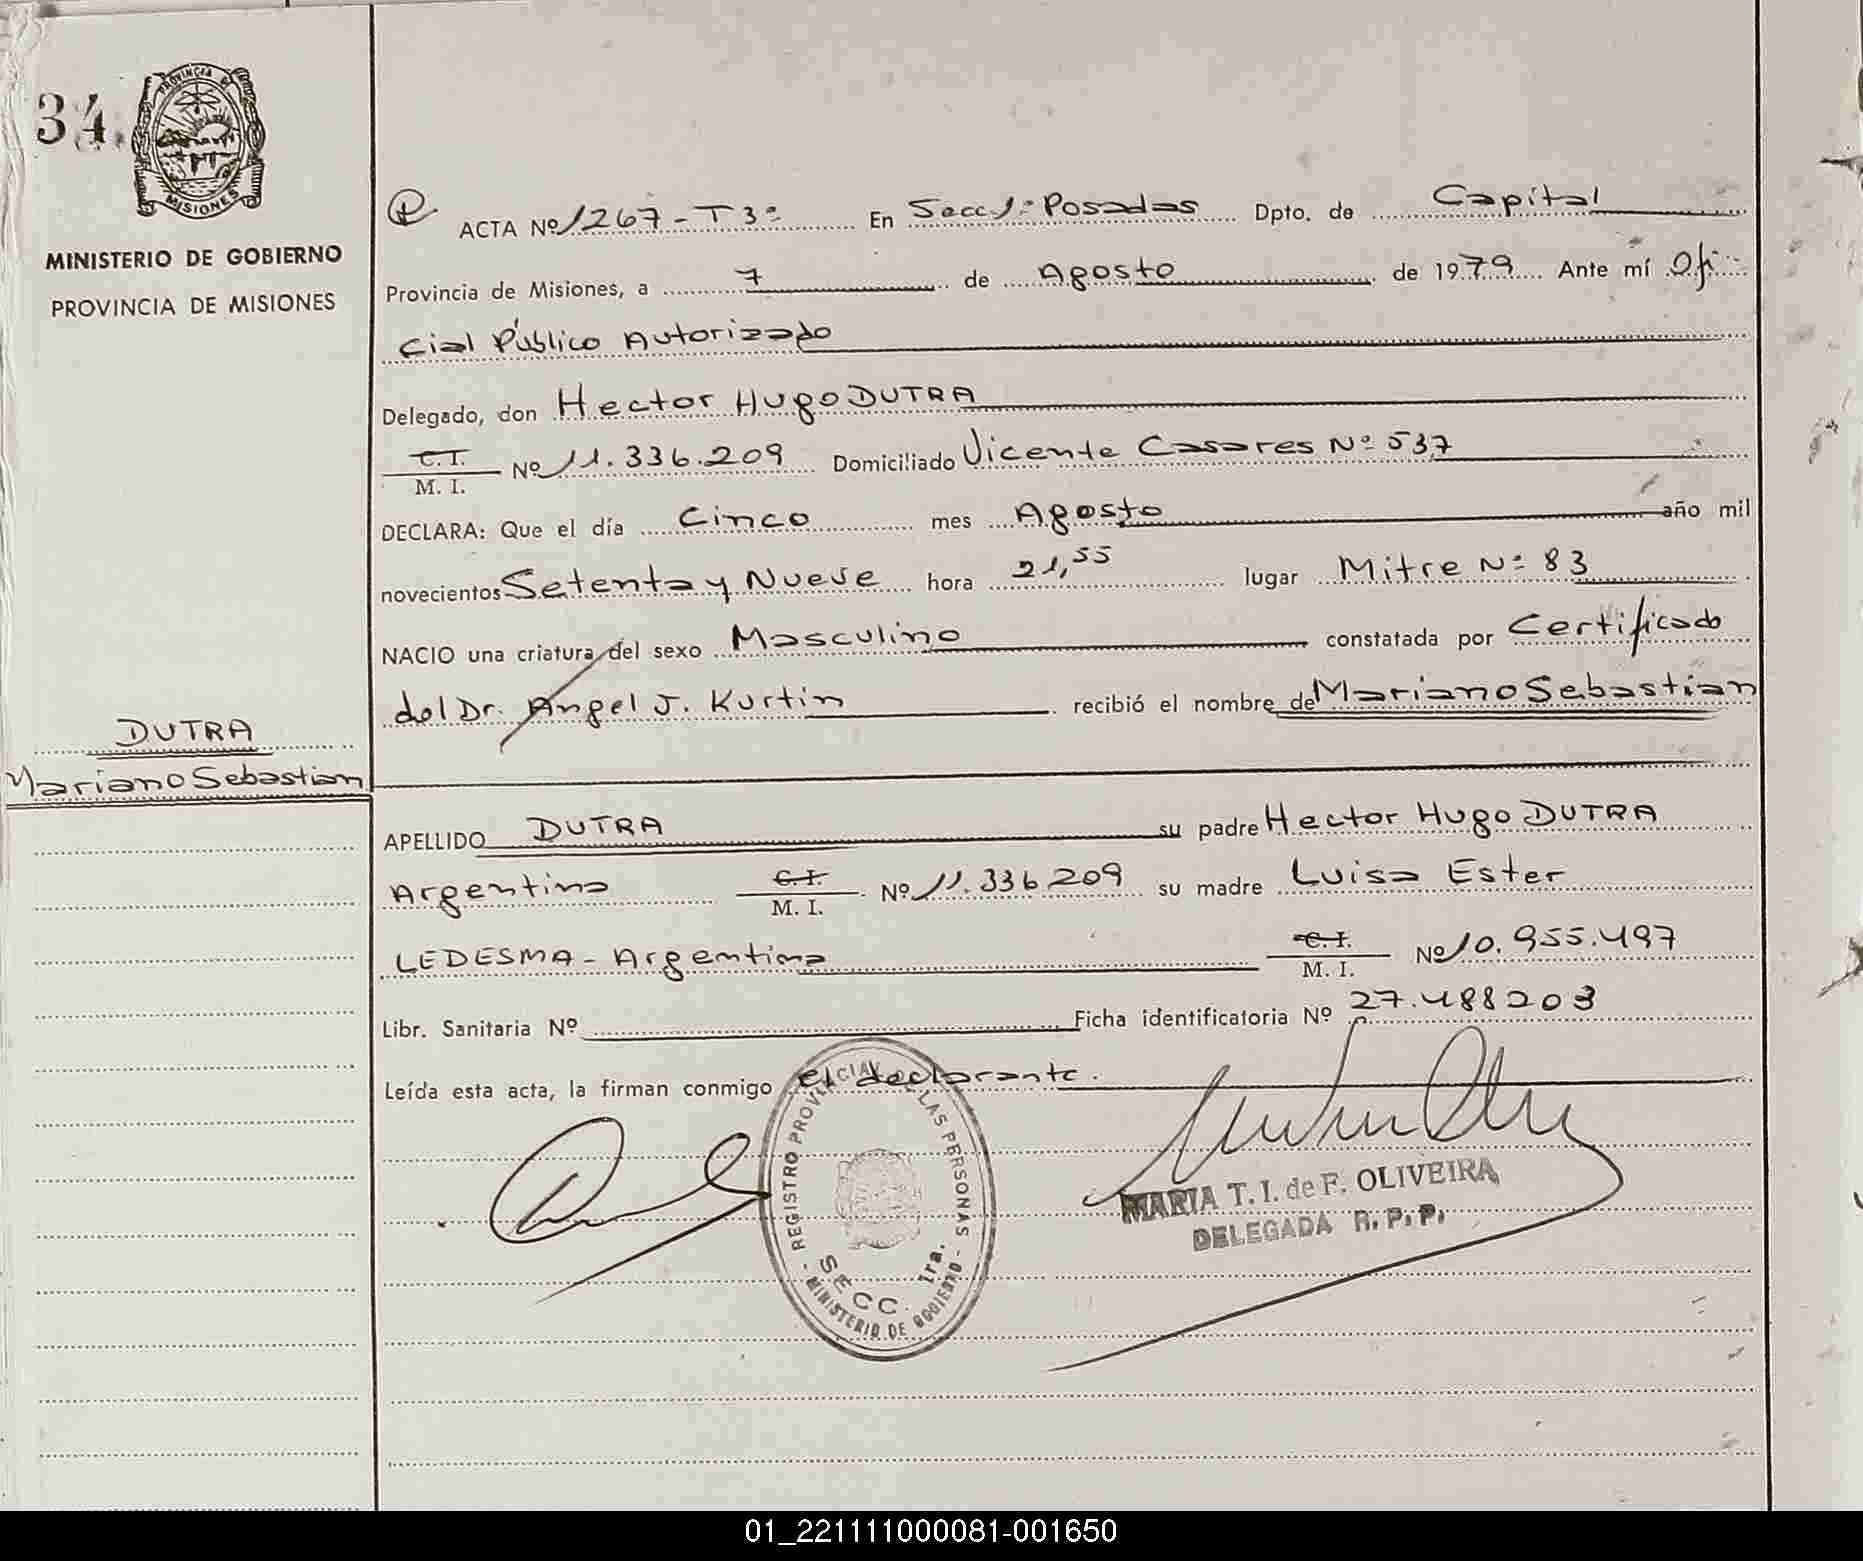 34.
PROVINCIA DE
MISIONES
MINISTERIO DE GOBIERNO
PROVINCIA DE MISIONES
DUTRA
Mariano Sebastian
ACTA Nº 1267-T3º En Secc 1ª Posadas Dpto. de Capital
Provincia de Misiones, a 7 de Agosto de 1979 Ante mí Ofi
cial Público Autorizado
Delegado, don Hector Hugo DUTRA
C.I. M. I. Nº 11.336.209 Domiciliado Vicente Casares Nº 537
DECLARA: Que el día Cinco mes Agosto año mil
novecientos Setenta y Nueve hora 21,55 lugar Mitre Nº 83
NACIO una criatura del sexo Masculino constatada por Certificado
del Dr. Angel J. Kurtin recibió el nombre de Mariano Sebastian
APELLIDO DUTRA su padre Hector Hugo DUTRA
Argentino C.I. M. I. Nº 11.336.209 su madre Luisa Ester
LEDESMA - Argentina C.I. M. I. Nº 10.955.497
Libr. Sanitaria Nº Ficha identificatoria Nº 27.488203
Leída esta acta, la firman conmigo el declarante.
REGISTRO PROVINCIAL DE LAS PERSONAS
SECC. 1ra.
- MINISTERIO DE GOBIERNO -
MARIA T. I. de F. OLIVEIRA
DELEGADA R. P. P.
01_221111000081-001650